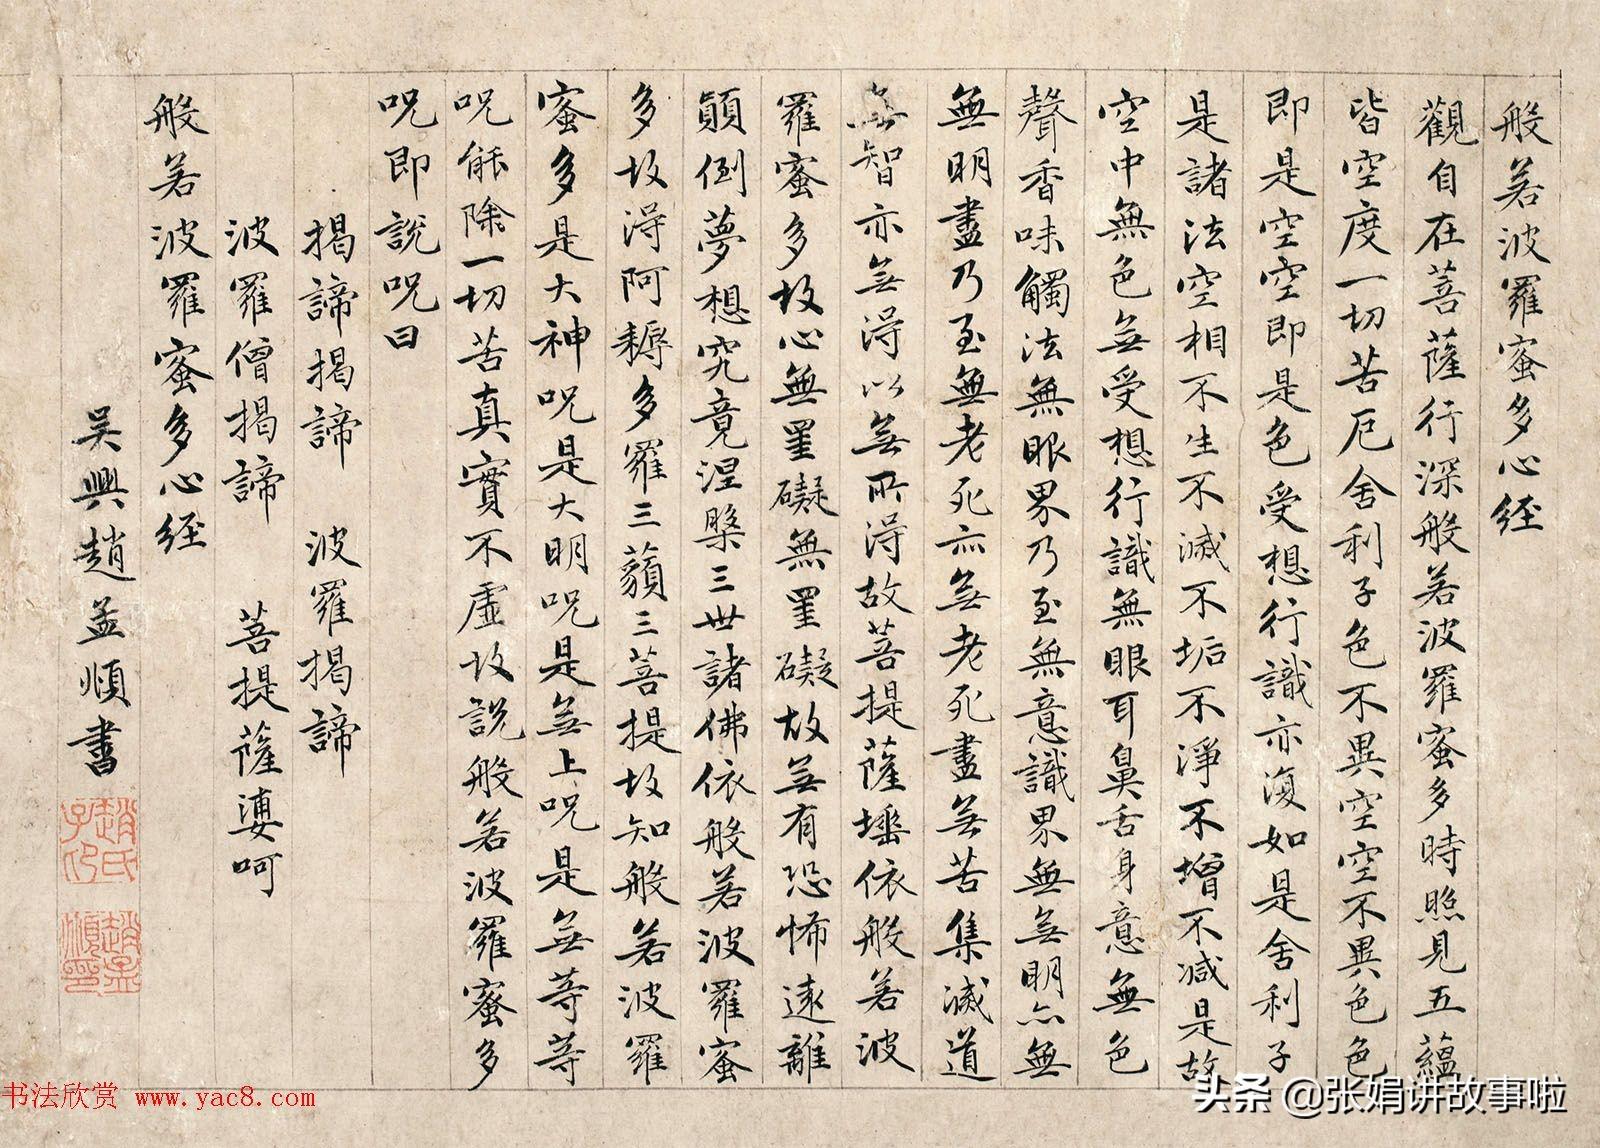 般若波羅蜜多心経
觀自在菩薩行深般若波羅蜜多時照見五蘊
皆空度一切苦厄舍利子色不異空空不異色色
即是空空即是色受想行識亦復如是舍利子
是諸法空相不生不滅不垢不淨不增不减是故
空中無色無受想行識無眼耳鼻舌身意無色
聲香味觸法無眼界乃至無意識界無無明亦無
無明盡乃至無老死亦無老死盡無苦集滅道
無智亦無得以無所得故菩提薩埵依般若波
羅蜜多故心無罣礙無罣礙故無有恐怖遠離
顛倒夢想究竟涅槃三世諸佛依般若波羅蜜
多故得阿耨多羅三藐三菩提故知般若波羅
蜜多是大神呪是大明呪是無上呪是無等等
呪能除一切苦真實不虛故說般若波羅蜜多
呪即說呪曰
揭諦揭諦 波羅揭諦
波羅僧揭諦 菩提薩婆呵
般若波羅蜜多心経
吴興趙孟頫書
趙氏子印
趙孟頫印
书法欣赏 www.yac8.com
头条 @张娟讲故事啦